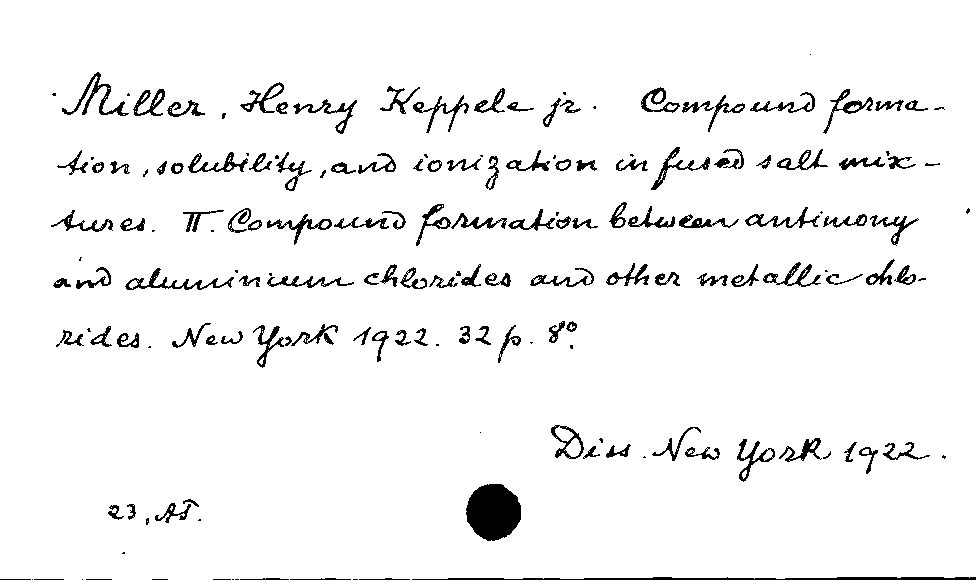 Miller, Henry Keppele jr. Compound forma-
tion, solubility, and ionization in fused salt mix-
tures. II. Compound formation between antimony
and aluminium chlorides and other metallic chlo-
rides. New York 1922. 32 p. 8°.
Diss. New York 1922.
23, AT.